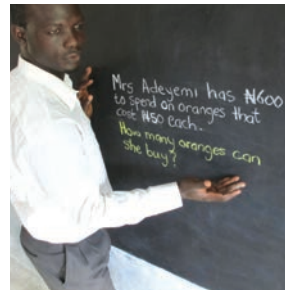 Mrs Adeyemi has ₦600
to spend on oranges that
cost ₦50 each.
How many oranges can
she buy?